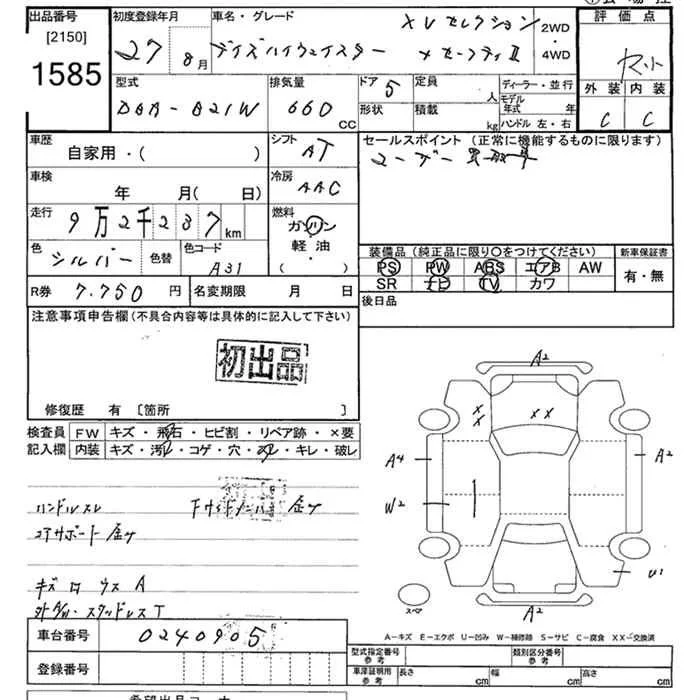 出品番号
[2150]
1585
初度登録年月
27 8月
車名・グレード
XVセレクション
デイズハイウェイスター
+セーフティⅡ
2WD
4WD
評価点
外装 内装
C C
型式
DBA-B21W
排気量
660 CC
ドア 5
定員 人
形状
積載 kg
ディーラー・並行
モデル年式 年
ハンドル 左・右
車歴
自家用・( )
シフト AT
セールスポイント (正常に機能するものに限ります)
ユーザー買取車
車検
年 月( 日)
冷房 AAC
走行
9万2千237km
燃料
ガソリン
軽油・
( ・ )
色
シルバー
色替
色コード
A31
装備品(純正品に限り〇をつけてください)
PS PW ABS エアB AW
SR ナビ TV カワ
新車保証書
有・無
R券 7.750円
名変期限 月 日
後日品
注意事項申告欄(不具合内容等は具体的に記入して下さい)
初出品
修復歴 有 [箇所 ]
検査員記入欄
FW キズ・飛石・ヒビ割・リペア跡・×要
内装 キズ・汚れ・コゲ・穴・スレ・キレ・破レ
ハンドルスレ
コアサポート金サ
キズロウスA
外ダル・スタッドレスT
A2
XX
XX
A4
A2
W2
U1
スペア
A2
A-キズ E-エクボ U-凹み W-補修跡 S-サビ C-腐食 XX-交換済
車台番号 0240905
登録番号
型式指定番号 参考
類別区分番号 参考
車庫証明用 参考
長さ cm
幅 cm
高さ cm
希望出品コーナー